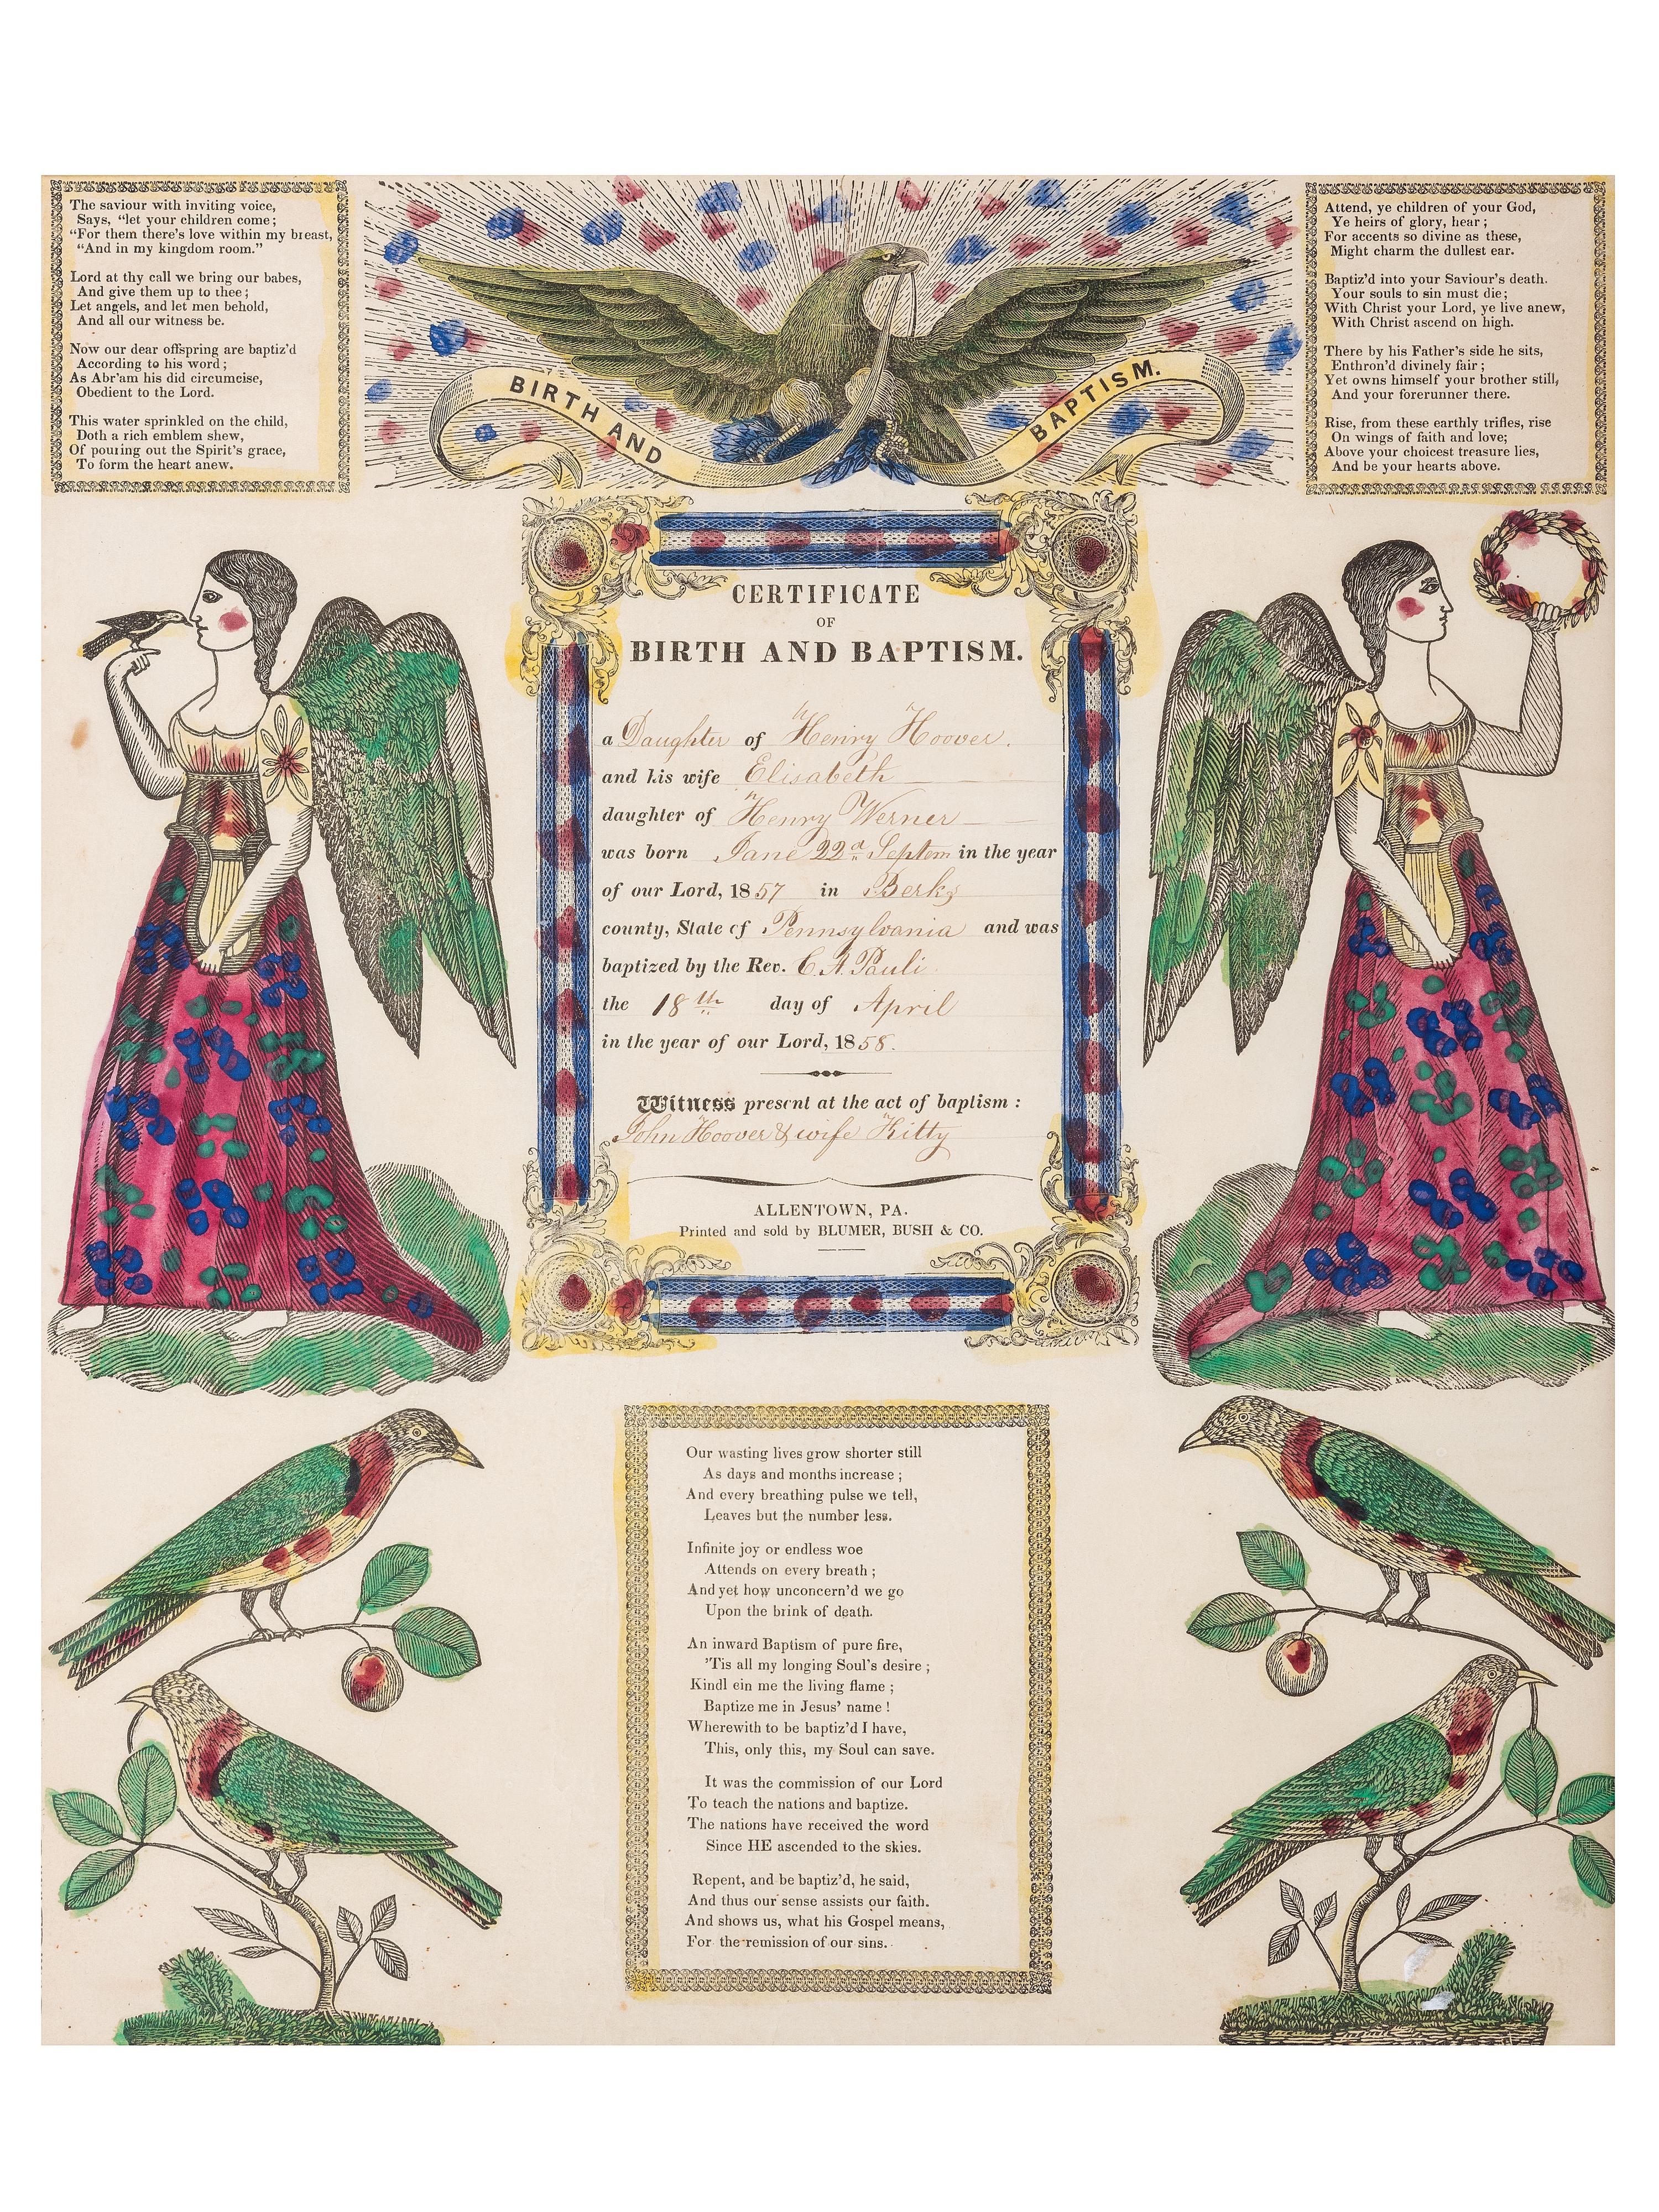 The saviour with inviting voice,
Says, “let your children come;
“For them there's love within my breast,
“And in my kingdom room.”
Lord at thy call we bring our babes,
And give them up to thee;
Let angels, and let men behold,
And all our witness be.
Now our dear offspring are baptiz'd
According to his word;
As Abr'am his did circumcise,
Obedient to the Lord.
This water sprinkled on the child,
Doth a rich emblem shew,
Of pouring out the Spirit's grace,
To form the heart anew.
BIRTH AND BAPTISM.
Attend, ye children of your God,
Ye heirs of glory, hear;
For accents so divine as these,
Might charm the dullest ear.
Baptiz'd into your Saviour's death.
Your souls to sin must die;
With Christ your Lord, ye live anew,
With Christ ascend on high.
There by his Father's side he sits,
Enthron'd divinely fair;
Yet owns himself your brother still,
And your forerunner there.
Rise, from these earthly trifles, rise
On wings of faith and love;
Above your choicest treasure lies,
And be your hearts above.
CERTIFICATE
OF
BIRTH AND BAPTISM.
a Daughter of Henry Hoover.
and his wife Elisabeth
daughter of Henry Werner
was born Jane 22d Septem in the year
of our Lord, 1857 in Berks
county, State of Pennsylvania and was
baptized by the Rev. C. A. Pauli
the 18th day of April
in the year of our Lord, 1858.
Witness present at the act of baptism:
John Hoover & wife Kitty
ALLENTOWN, PA.
Printed and sold by BLUMER, BUSH & CO.
Our wasting lives grow shorter still
As days and months increase;
And every breathing pulse we tell,
Leaves but the number less.
Infinite joy or endless woe
Attends on every breath;
And yet how unconcern'd we go
Upon the brink of death.
An inward Baptism of pure fire,
'Tis all my longing Soul's desire;
Kindl ein me the living flame;
Baptize me in Jesus' name!
Wherewith to be baptiz'd I have,
This, only this, my Soul can save.
It was the commission of our Lord
To teach the nations and baptize.
The nations have received the word
Since HE ascended to the skies.
Repent, and be baptiz'd, he said,
And thus our sense assists our faith.
And shows us, what his Gospel means,
For the remission of our sins.